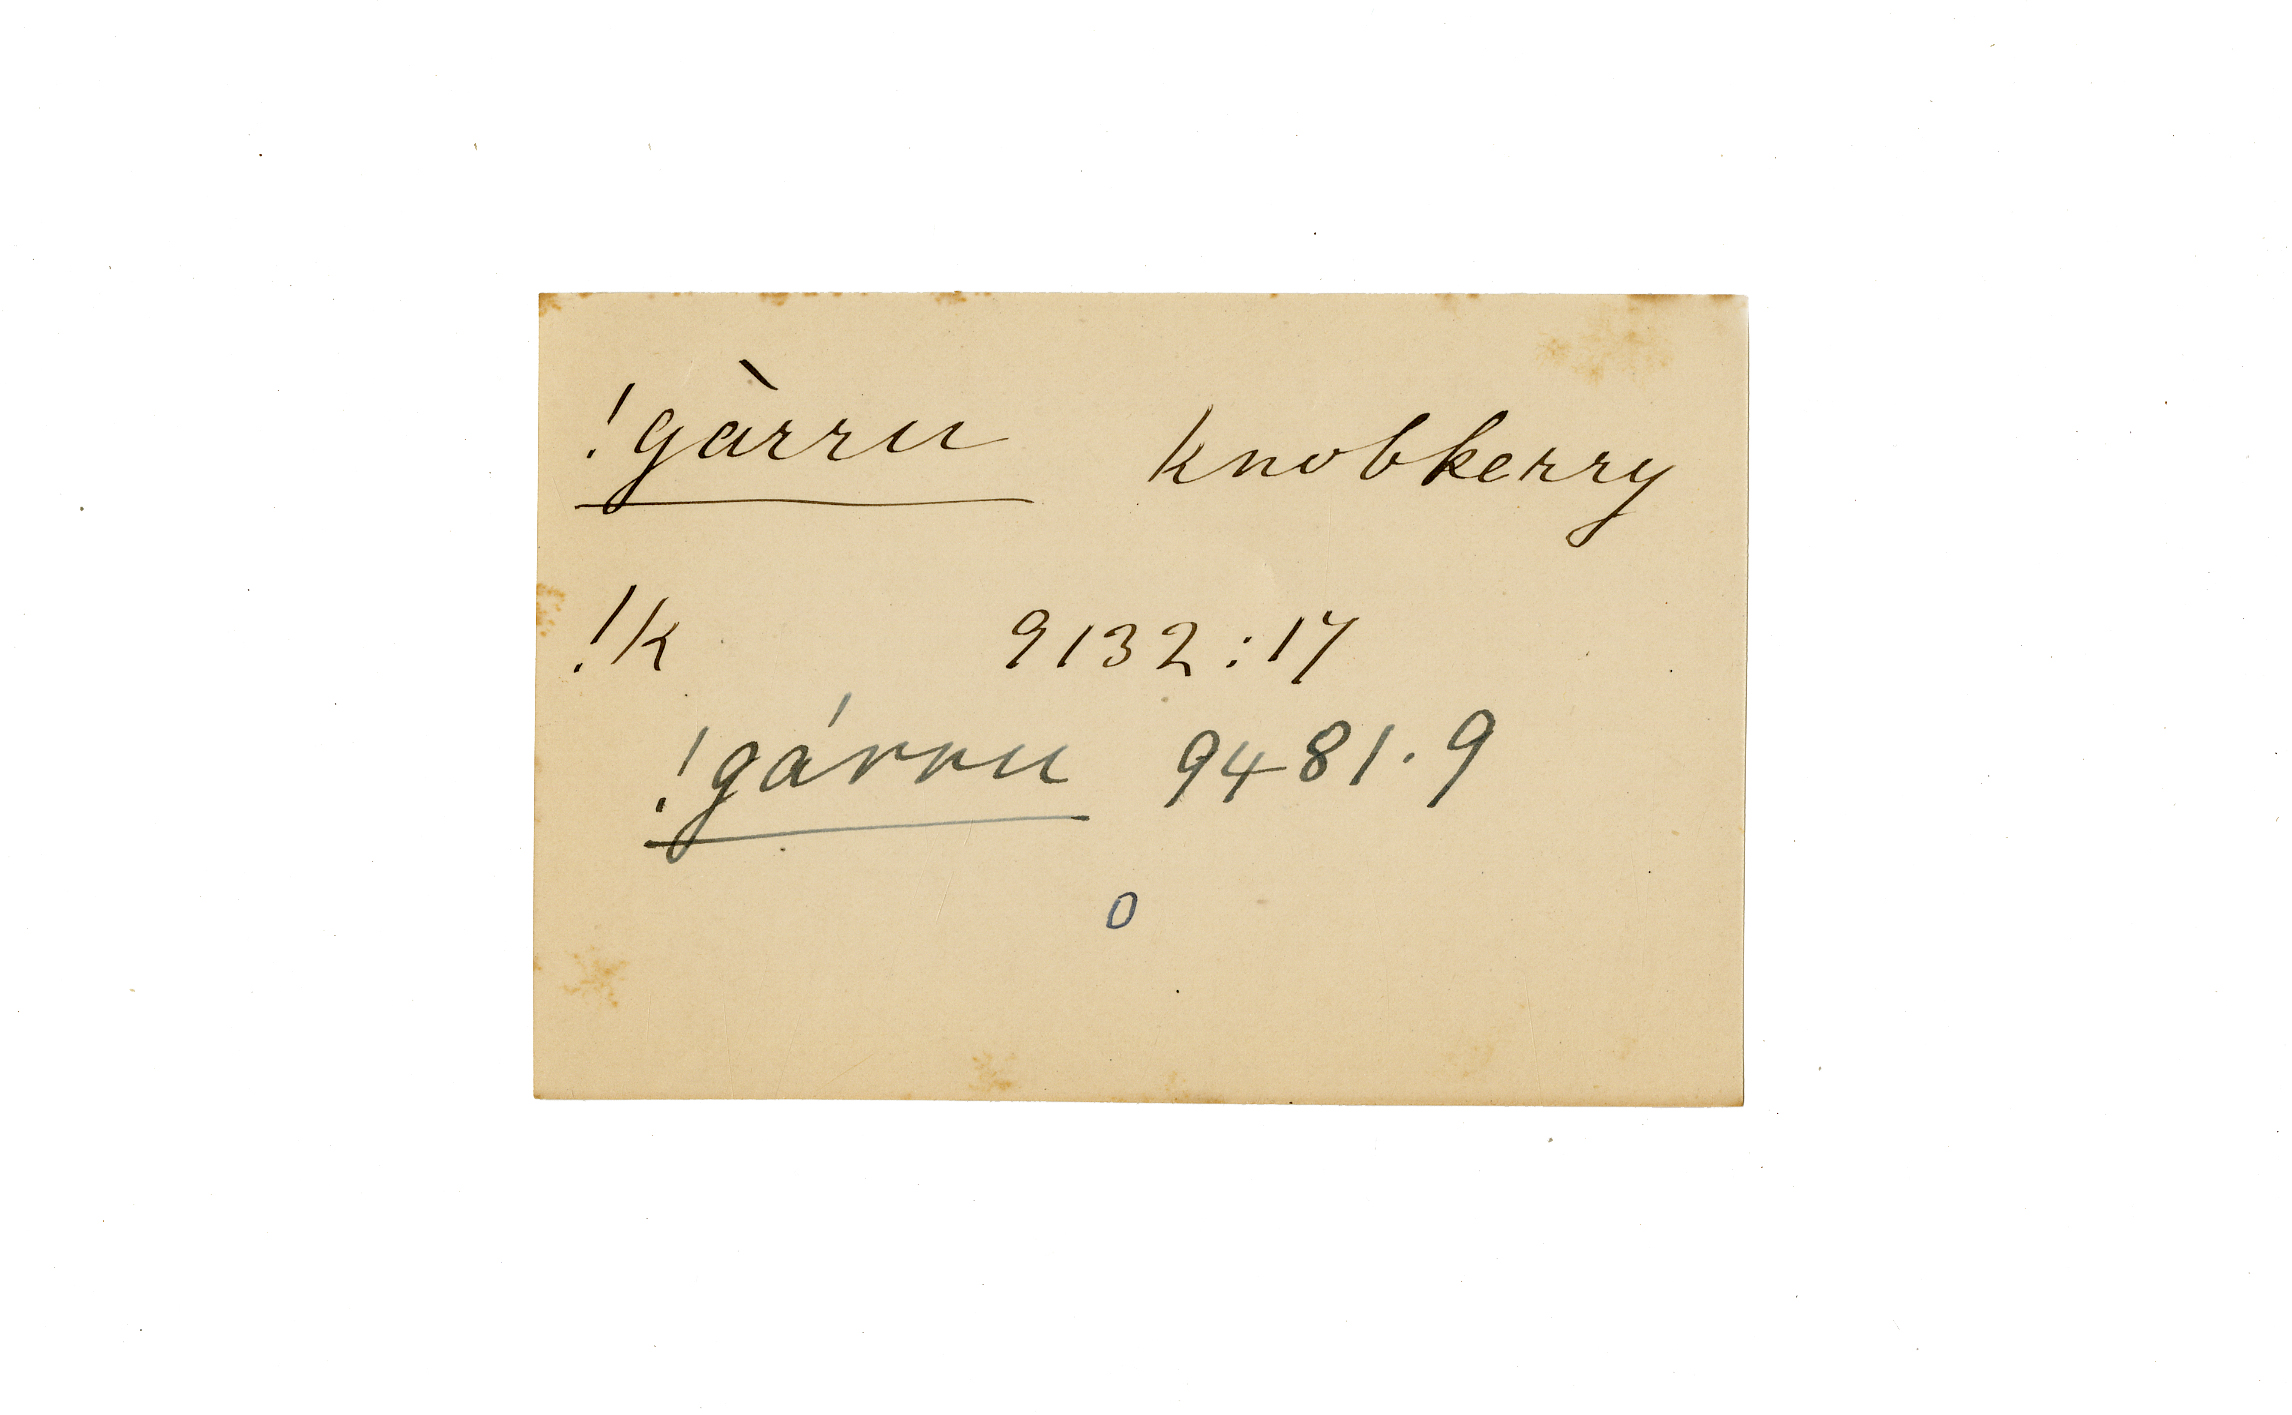 !gàrru knobkerry
!k 9132:17
!gárru 9481.9
0